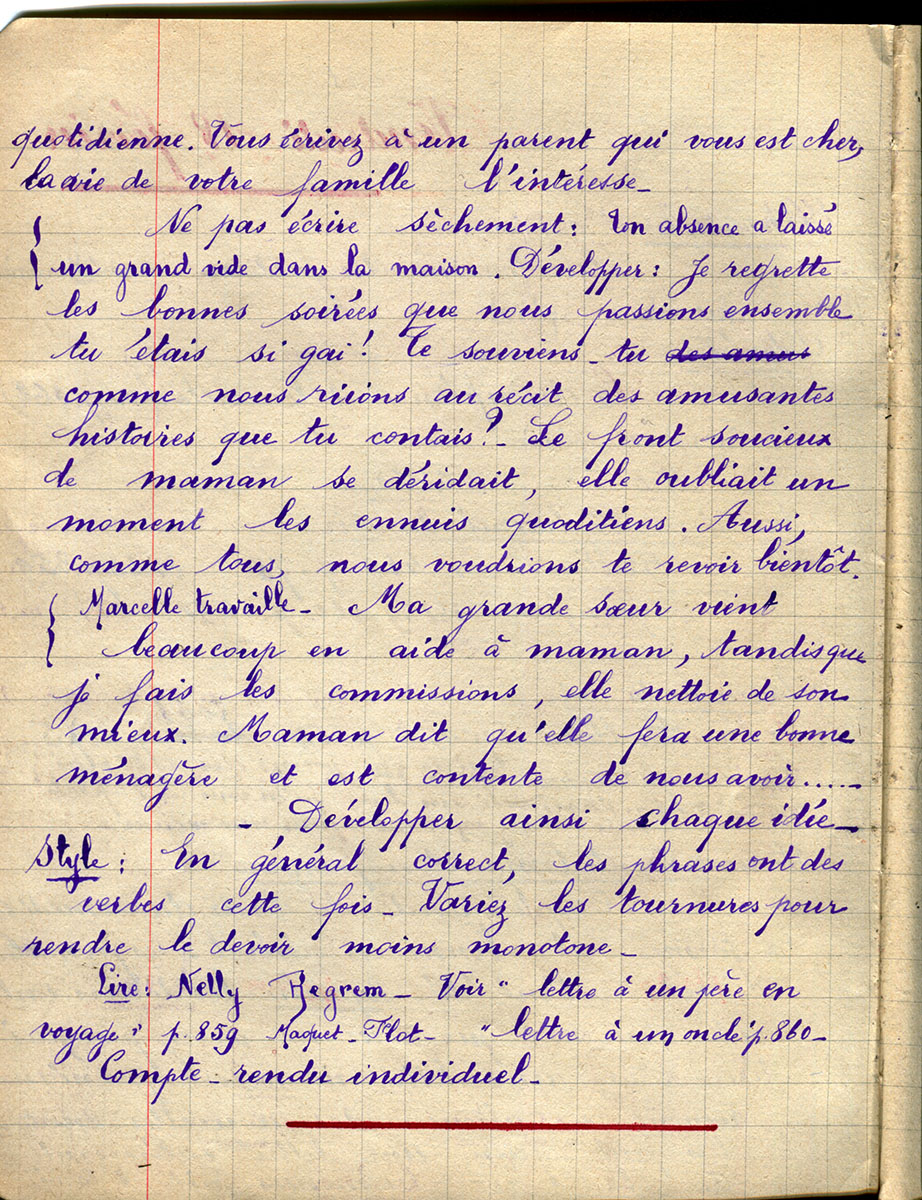 quotidienne. Vous écrivez à un parent qui vous est cher,
la vie de votre famille l'intéresse_
Ne pas écrire sèchement: Ton absence a laissé
un grand vide dans la maison. Développer: Je regrette
les bonnes soirées que nous passions ensemble
tu étais si gai! Te souviens-tu des amus
comme nous riions au récit des amusantes
histoires que tu contais?_ Le front soucieux
de maman se déridait, elle oubliait un
moment les ennuis quoditiens. Aussi,
comme tous, nous voudrions te revoir bientôt.
Marcelle travaille_ Ma grande sœur vient
beaucoup en aide à maman, tandis que
je fais les commissions, elle nettoie de son
mieux. Maman dit qu'elle fera une bonne
ménagère et est contente de nous avoir.....
_ Développer ainsi chaque idée_
Style: En général correct, les phrases ont des
verbes cette fois_ Variez les tournures pour
rendre le devoir moins monotone_
Lire: Nelly _ Voir "lettre à un père en
voyage" p.859 Maquet_Flot_ "lettre à un oncle" p.860_
Compte-rendu individuel_